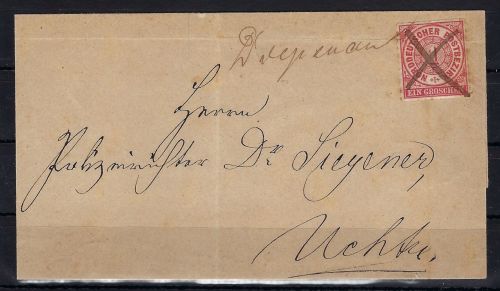 Diepenau
NORDDEUTSCHER POSTBEZIRK
1
EIN GROSCHEN
Herrn
Polizeirichter Dr. Siegener,
Uchte.